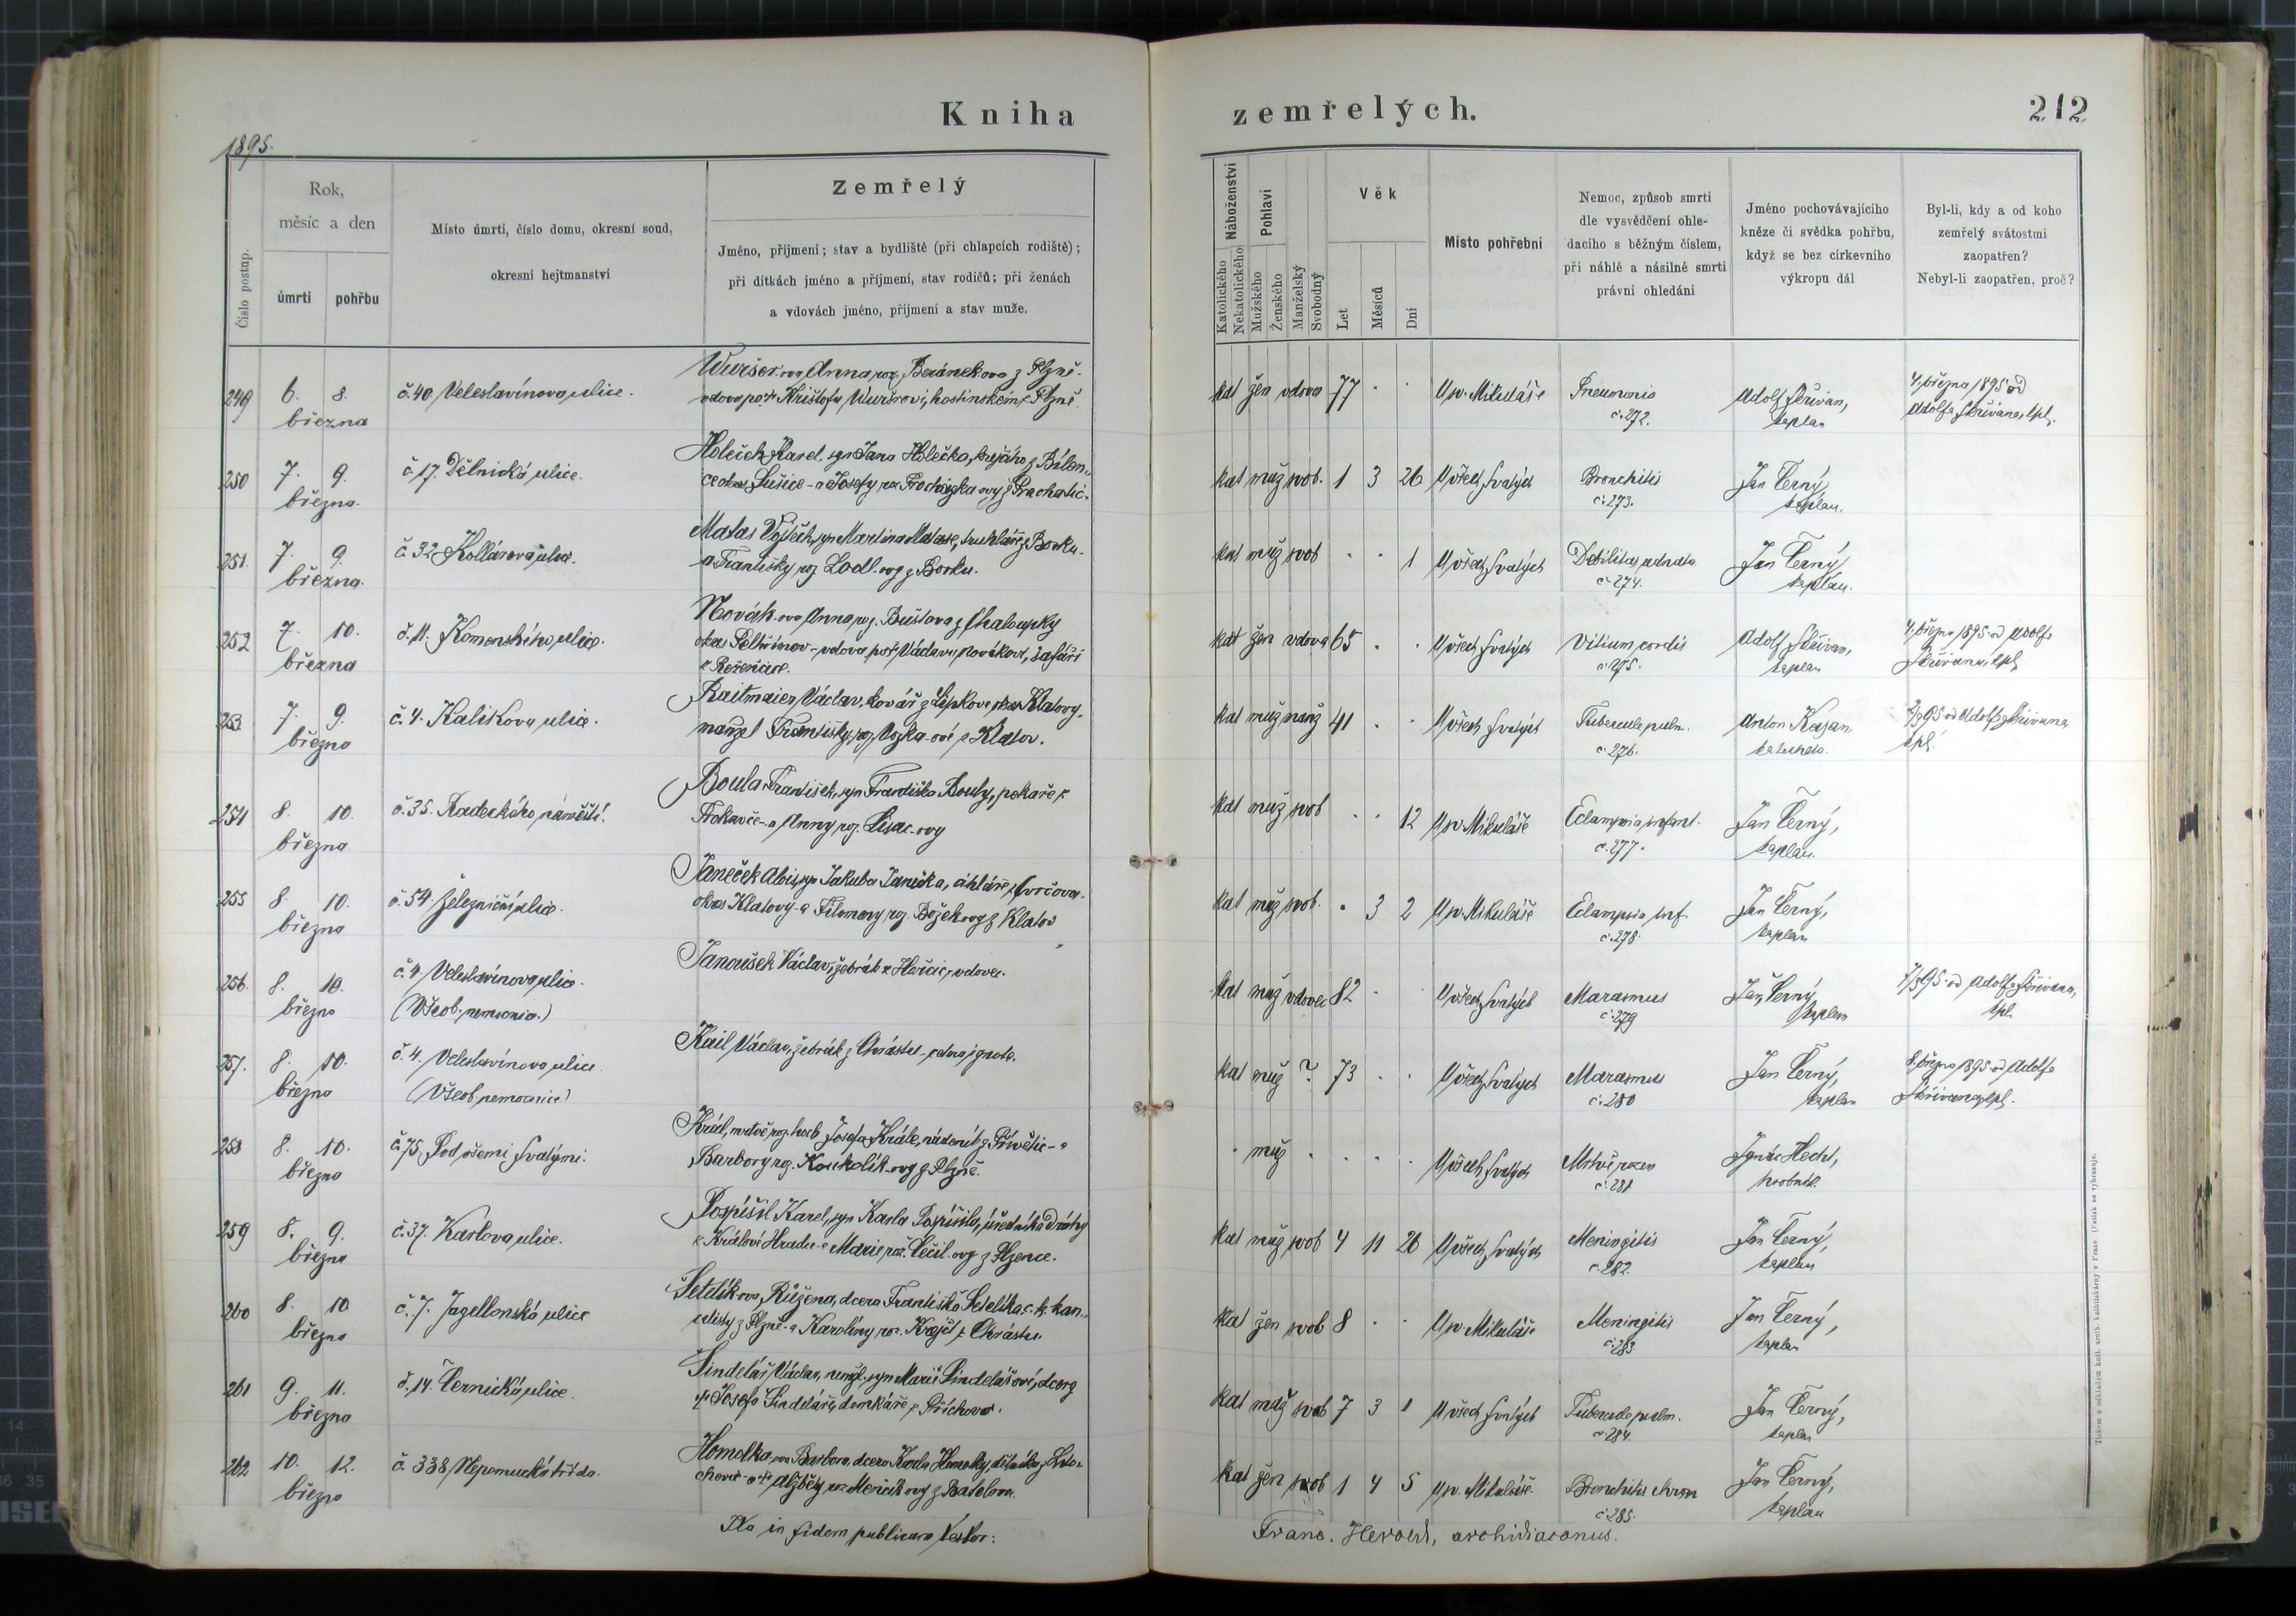 Kniha
zemřelých.
212
1895.
Číslo postup.
Rok,
měsíc a den
úmrtí
pohřbu
Místo úmrtí, číslo domu, okresní soud,
okresní hejtmanství
Zemřelý
Jméno, příjmení; stav a bydliště (při chlapcích rodiště);
při dítkách jméno a příjmení, stav rodičů; při ženách
a vdovách jméno, příjmení a stav muže.
Náboženství
Katolického
Nekatolického
Pohlaví
Mužského
Ženského
Manželský
Svobodný
Věk
Let
Měsíců
Dní
Místo pohřební
Nemoc, způsob smrti
dle vysvědčení ohle-
dacího s běžným číslem,
při náhlé a násilné smrti
právní ohledání
Jméno pochovávajícího
kněze či svědka pohřbu,
když se bez církevního
výkropu dál
Byl-li, kdy a od koho
zemřelý svátostmi
zaopatřen?
Nebyl-li zaopatřen, proč?
249 6. 8. března
č. 40 Veleslavínova ulice.
Wuršer-ova Anna, roz. Beránek-ova z Plzně.
vdova po Krištofu Wuršrovi, hostinském z Plzně.
kat žen vdova 77 U sv. Mikuláše
Pneumonia
č. 272.
Adolf Skřivan,
kaplan
4. března 1895 od
Adolfa Skřivana, kpl.
250 7. 9. března
č. 17. Dělnická ulice.
Holeček Karel, syn Jana Holečka,
okres Sušice - a Josefy roz. Procházka-ovy z Prachatic.
kat muž svob. 1 3 26 U všech svatých
Bronchitis
č. 273.
Jan Černý,
kaplan.
251. 7. 9. března.
č. 32 Kollárova ulice.
Matas Vojtěch, syn Martina Matase, truhláře z Borku.
a Františky roz. Lodl-ovy z Borku.
kat muž svob 1 U všech svatých
Debilitas adnata
č. 274.
Jan Černý
kaplan.
252 7. 10. března
č. 11. Komenského ulice.
Novák-ova Anna, roz. Bušlova z Chaloupky
okres Pelhřimov - vdova po Václavu Novákovi, šafáři
kat žen vdova 65 U všech svatých
Vitium cordis
č. 275.
Adolf Skřivan,
kaplan
4. března 1895 od Adolfa
Skřivana, kpl.
253 7. 9. března
č. 4. Kalikova ulice.
Raitmaier Václav, kovář z Lipkova okres Klatovy.
manžel Františky, roz. z Klatov.
kat muž manž 41 U všech svatých
Tubercule pulm.
č. 276.
Anton Kažan,
katecheta.
2/395 od Adolfa Skřivana
kpl.
254 8. 10. března
č. 35. Radeckého náměstí.
Boula František, syn Františka Bouly, pekaře z
Trokavce - a Anny roz. Lisac-ovy
kat muž svob 12 U sv. Mikuláše
Eclampsia infant.
č. 277.
Jan Černý,
kaplan.
255 8. 10. března
č. 54. Železniční ulice.
Janeček Alois, syn Jakuba Janečka, cihláře z Svrčovce.
okres Klatovy - a Filomeny roz. Božek-ovy z Klatov
kat muž svob. 3 2 U sv. Mikuláše
Eclampsia inf.
č. 278.
Jan Černý,
kaplan
256. 8. 10. března
č. 4 Veleslavínova ulice.
(Všeob. nemocnice.)
Janoušek Václav, žebrák z Hořic, vdovec.
kat muž vdovec 82 U všech svatých
Marasmus
č. 279
Jan Černý
kaplan
7/395 od Adolfa Skřivana,
kpl.
257. 8. 10. března
č. 4. Veleslavínova ulice.
(Všeob. nemocnice)
Kail Václav, žebrák z Chrástu
kat muž ? 73 U všech svatých
Marasmus
č. 280
Jan Černý,
kaplan
8. března 1895 od Adolfa
Skřivana, kpl.
258 8. 10. března
č. 75, Pod všemi svatými.
Král, mrtvě roz. hoch Josefa Krále, nádeníka z Přívětic - a
Barbory roz. Koukolík-ovy z Plzně.
muž U všech svatých
Mrtvě rozen
č. 281
Ignác Hecht,
hrobník.
259 8. 9. března
č. 37. Karlova ulice.
Pospíšil Karel, syn Karla Pospíšila, úředníka dráhy
z Králové Hradce - a Marie roz. Cečil-ovy z Plzence.
kat muž svob 4 11 26 U všech svatých
Meningitis
č. 282.
Jan Černý,
kaplan
260 8. 10 března
č. 7. Jagellonská ulice
Šetelík-ova Růžena, dcera Františka Šetelíka c. k. kan-
celisty z Plzně - a Karolíny roz. Krejčí z Chrástu.
kat žen svob 8 U sv. Mikuláše
Meningitis
č. 283.
Jan Černý,
kaplan
261 9. 11. března
č. 14. Černická ulice.
Šindelář Václav, nemanž. syn Marie Šindelářové, dcery
Josefa Šindeláře, domkáře z Příchovic.
kat muž svob 7 3 1 U všech svatých
Tubercule pulm.
č. 284.
Jan Černý,
kaplan
262 10. 12. března
č. 338 Nepomucká třída.
Homolka-ova Barbora, dcera Karla Homolky, dělníka z
Alžběty roz. Menčík-ovy z Batelova.
kat žen svob 1 4 5 U sv. Mikuláše
Bronchitis chron
č. 285.
Jan Černý,
kaplan
Ita in fidem publicam testor:
Franc. Herold, archidiaconus.